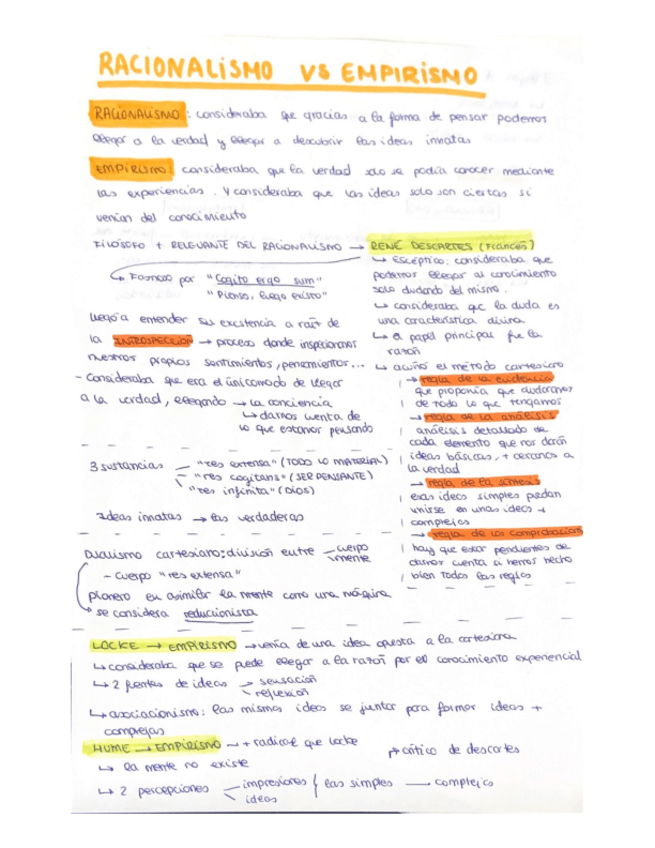 RACIONALISMO VS EMPIRISMO
RACIONALISMO: consideraba que gracias a la forma de pensar podemos
llegar a la verdad y llegar a descubrir las ideas innatas
EMPIRISMO: consideraba que la verdad solo se podía conocer mediante
las experiencias. Y consideraba que las ideas solo son ciertas si
venían del conocimiento
FILÓSOFO + RELEVANTE DEL RACIONALISMO → RENÉ DESCARTES (Francés)
↳ Famoso por "Cogito ergo sum"
"Pienso, luego existo"
llegó a entender su existencia a raíz de
la INTROSPECCIÓN → proceso donde inspeccionamos
nuestros propios sentimientos, pensamientos...
- Consideraba que era el único modo de llegar
a la verdad, llegando → la conciencia
↳ darnos cuenta de
lo que estamos pensando
3 sustancias — "res extensa" (TODO LO MATERIAL)
"res cogitans" (SER PENSANTE)
"res infinita" (DIOS)
Ideas innatas → las verdaderas
Dualismo cartesiano: división entre cuerpo
mente
- Cuerpo "res extensa"
pionero en asimilar la mente como una máquina
↳ se considera reduccionista
↳ Escéptico: consideraba que
podemos llegar al conocimiento
solo dudando del mismo.
↳ consideraba que la duda es
una característica divina
↳ el papel principal fue la
razón
↳ acuñó el método cartesiano
→ regla de la evidencia
que proponía que dudáramos
de todo lo que tengamos
→ regla de la análisis
análisis detallado de
cada elemento que nos darán
ideas básicas, + cercanas a
la verdad
→ regla de la síntesis
esas ideas simples puedan
unirse en unas ideas +
complejas
→ regla de las comprobación
hay que estar pendientes de
darnos cuenta si hemos hecho
bien todas las reglas
LOCKE → EMPIRISMO → venía de una idea opuesta a la cartesiana
↳ consideraba que se puede llegar a la razón por el conocimiento experiencial
↳ 2 fuentes de ideas → sensación
reflexión
↳ asociacionismo: las mismas ideas se juntan para formar ideas +
complejas
HUME → EMPIRISMO → + radical que Locke crítico de descartes
↳ la mente no existe
↳ 2 percepciones — impresiones { las simples — complejas
ideas